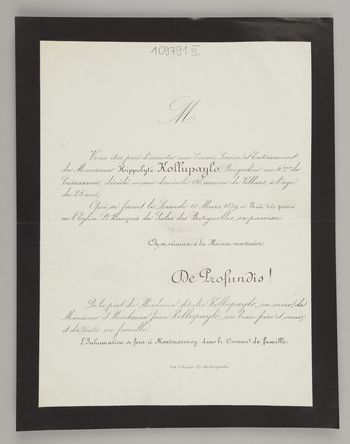 109791 III
M
Vous êtes prié d'assister aux Convoi, Service et Enterrement
de Monsieur Hippolyte Kollupaylo Brigadier au 6ème de
Cuirassiers, décédé en son domicile, avenue de Villiers, à l'âge
de 25 ans,
Qui se feront le Lundi 10 Mars 1879, à Midi très précis
en l'Eglise St François de Sales des Batignolles, sa paroisse
On se réunira à la Maison mortuaire
De Profundis!
De la part de Madame Kollupaylo, sa mère, de
Monsieur et Madame Jean Kollupaylo, ses beau frère et soeur,
et de toute sa famille
L'Inhumation se fera à Montmorency dans le Caveau de famille.